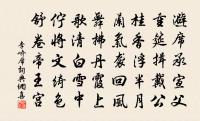 避席承宣父
重筵揖戴公
桂香浮半月
蘭氣襲回風
舞拂丹霞上
歌清白雪中
佇將文綺色
舒卷帝王宮
李嶠席詞典網